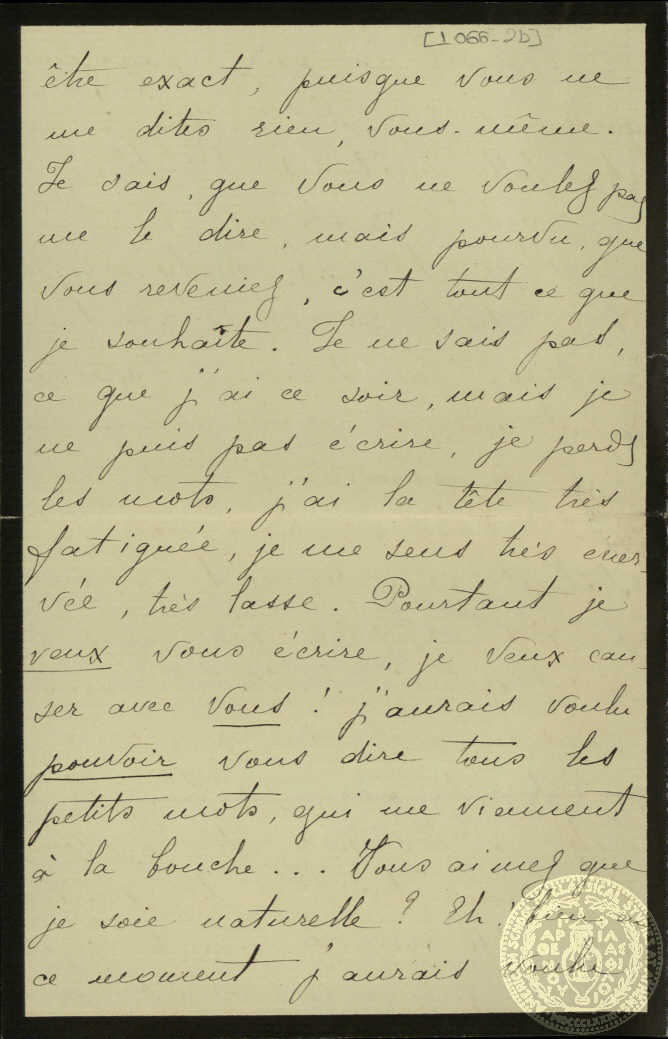 [1066-2b]
être exact, puisque vous ne
me dites rien, vous-même.
Je sais, que vous ne voulez pas
me le dire, mais pourvu, que
vous reveniez, c'est tout ce que
je souhaite. Je ne sais pas,
ce que j'ai ce soir, mais je
ne puis pas écrire, je perds
les mots, j'ai la tête très
fatiguée, je me sens très éner-
vée, très lasse. Pourtant je
veux vous écrire, je veux cau-
ser avec vous! j'aurais voulu
pouvoir vous dire tous les
petits mots, qui me viennent
à la bouche... Vous aimez que
je soie naturelle? Eh! bien en
ce moment j'aurais voulu